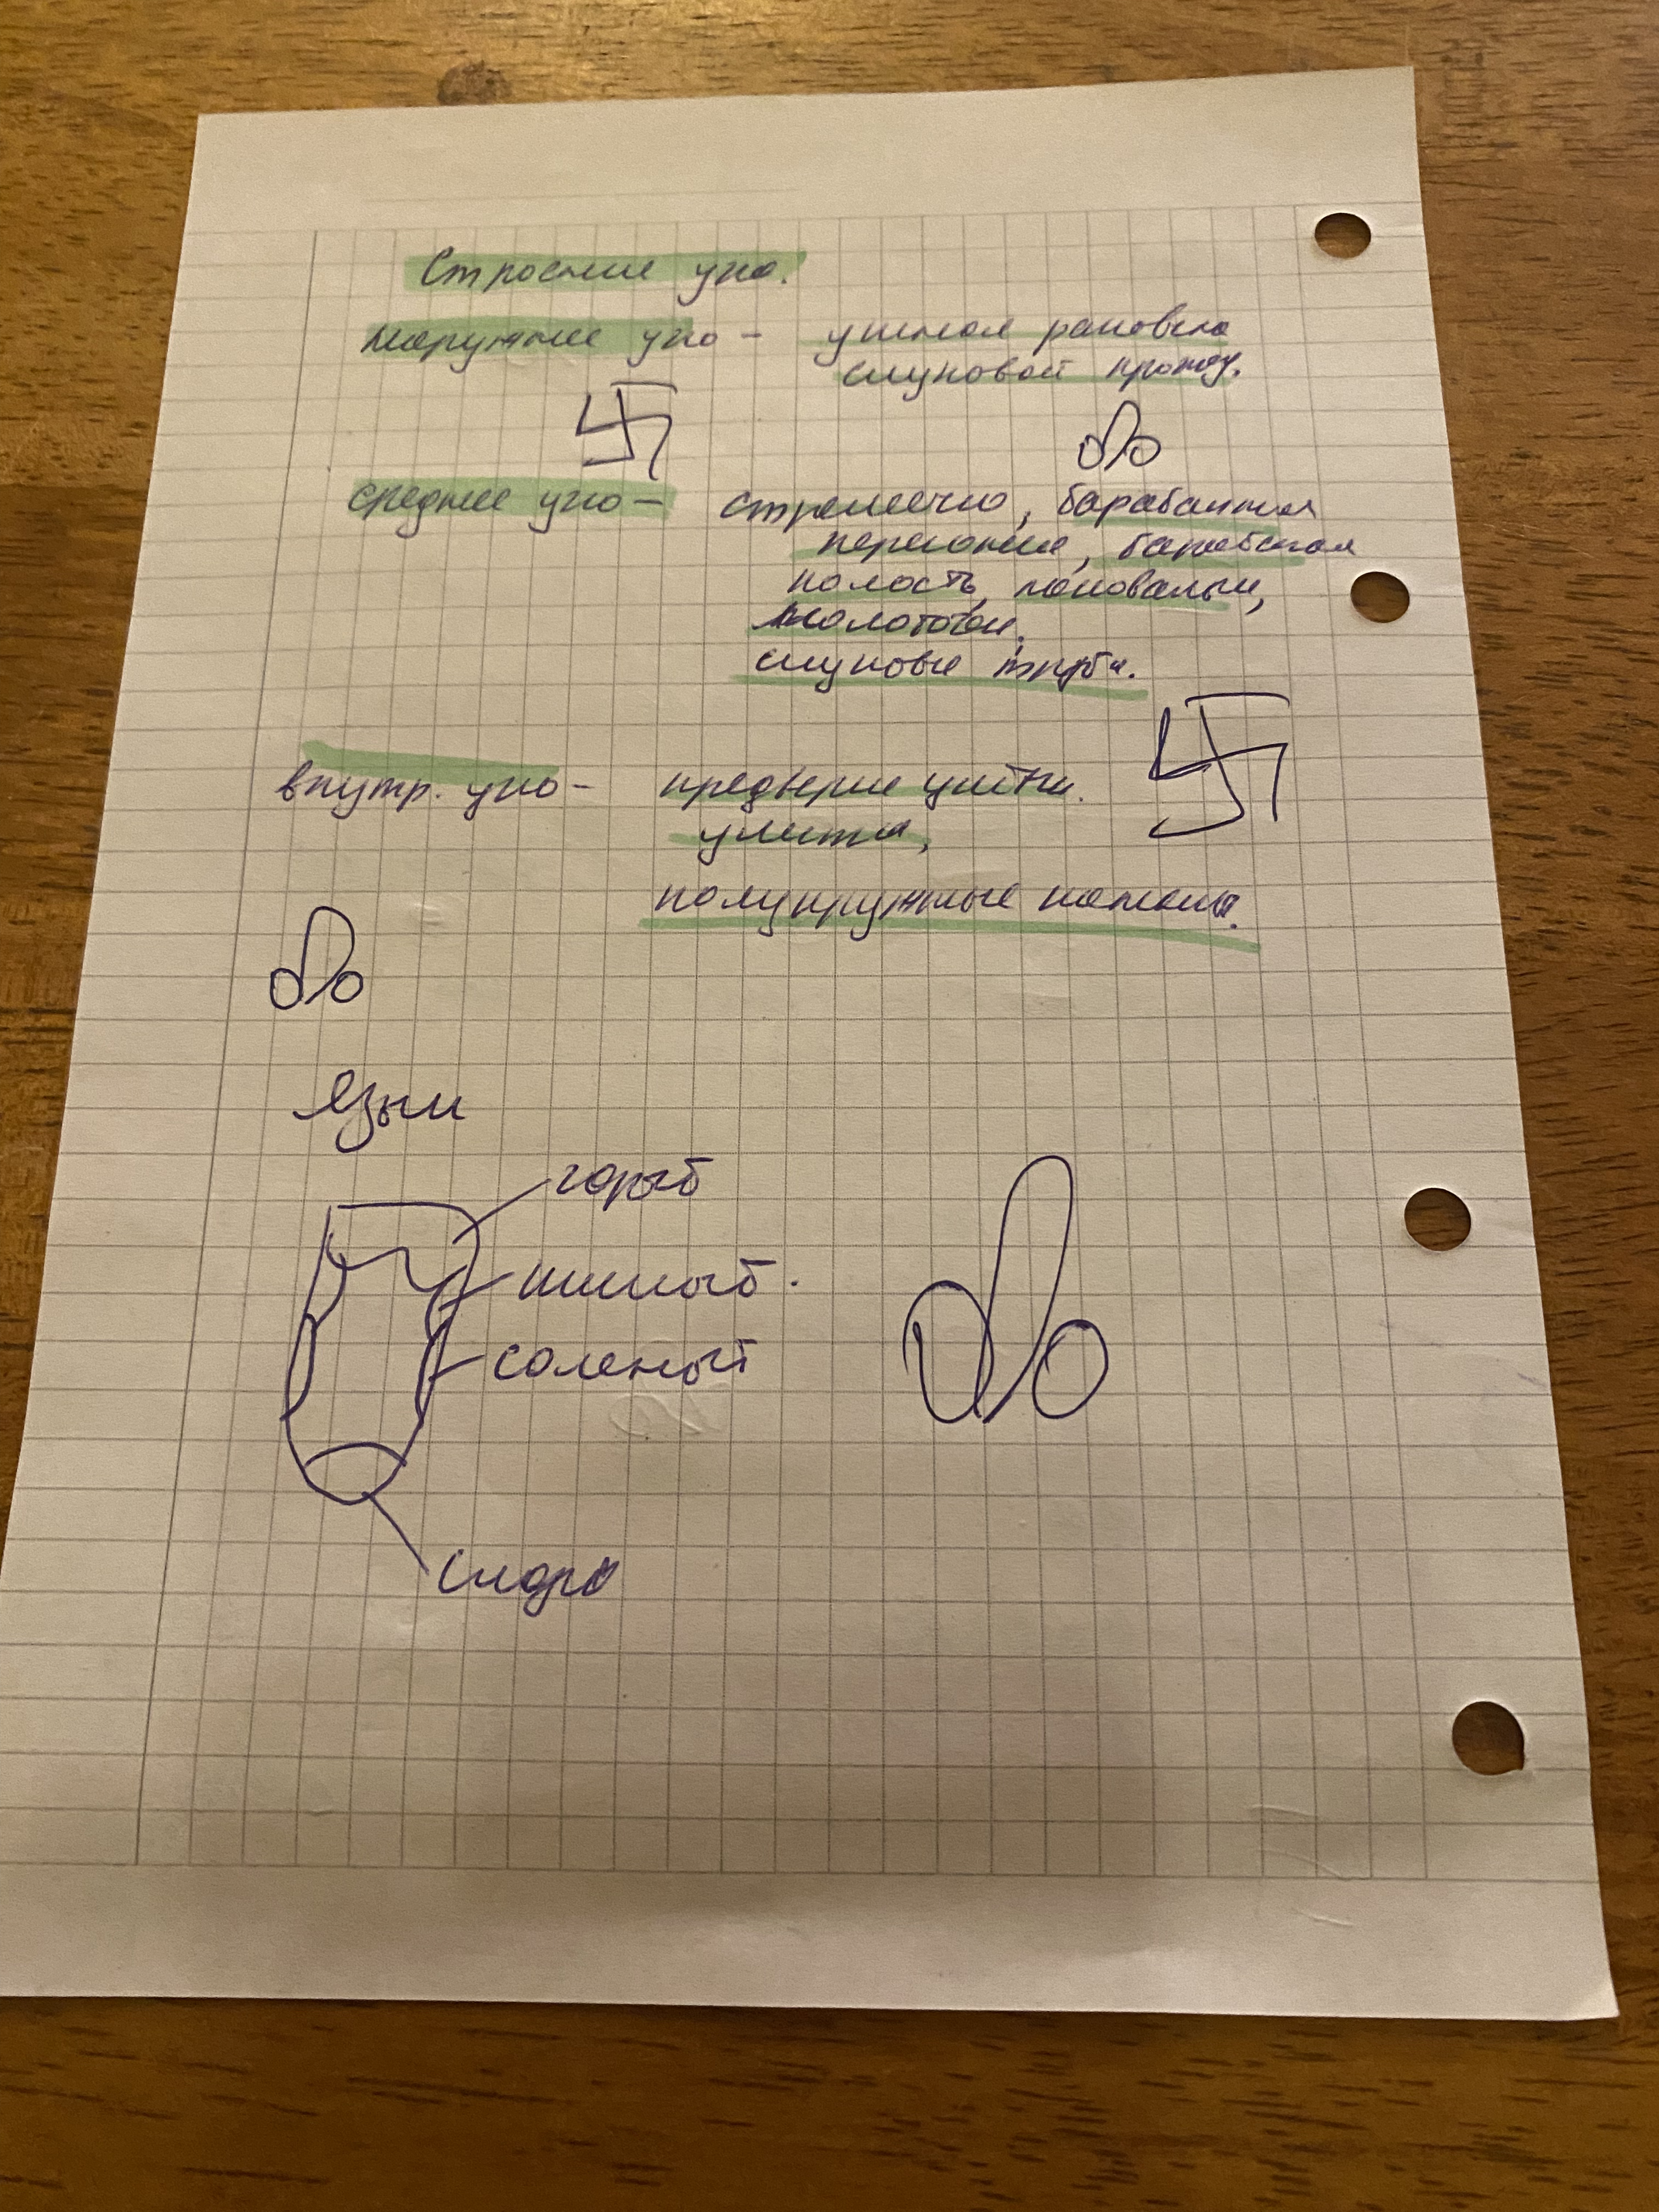 Строение ухо.
Наружнее ухо - ушная раковина
слуховой проход.
среднее ухо - стремечко, барабанная
перепонка,
полость, наковальни,
молоточек.
слуховые трубы.
внутр. ухо - предверие улитки.
улитка,
полукружные каналы.
Язык
горький
кислый.
соленый
сладко